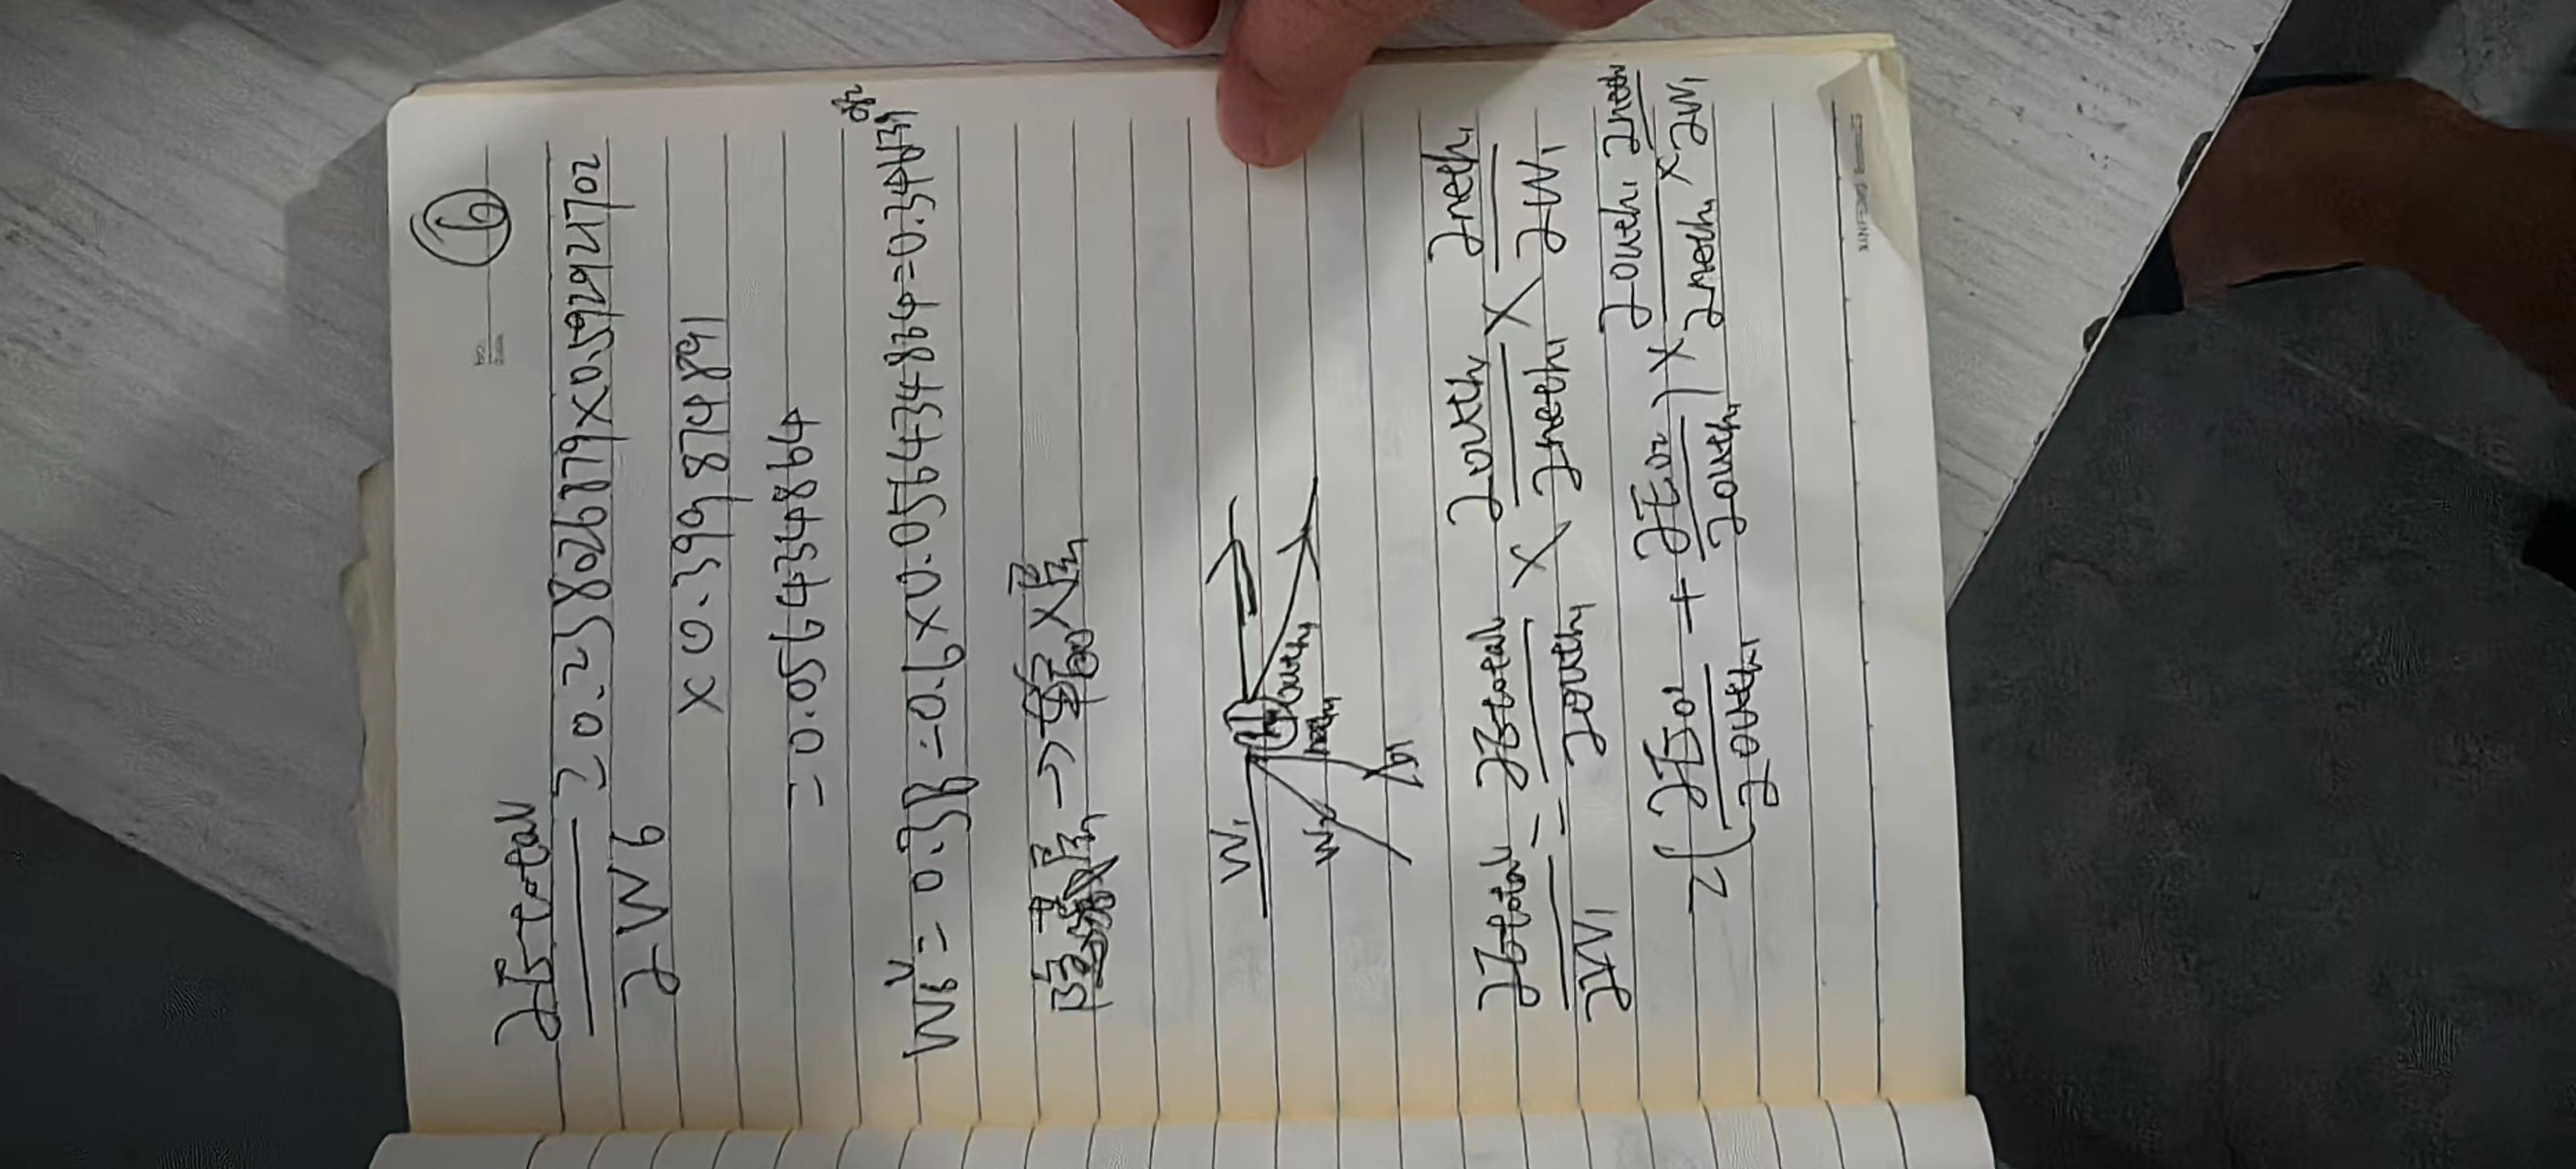 ⑥
∂Etotal/∂W6 = 0.238026179×0.5962921702
×0.3968747891
=0.0564234864
W8' = 0.38 -0.6×0.0564234864=0.3461459
隐藏层→输入层
W1
outh1
neth1
W2
b1
∂Etotal/∂W1 = ∂Etotal/∂outh1 × ∂outh1/∂neth1 × ∂neth1/∂W1
=(∂Eo1/∂outh1 + ∂Eo2/∂outh1)× ∂outh1/∂neth1 × ∂neth1/∂W1